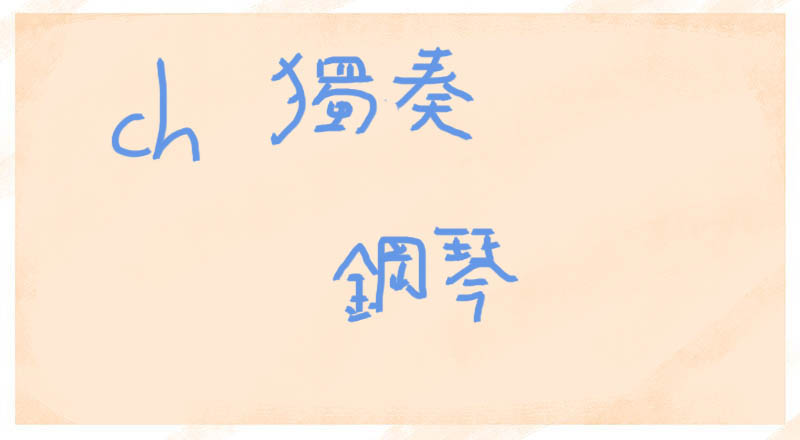 ch 獨奏
鋼琴